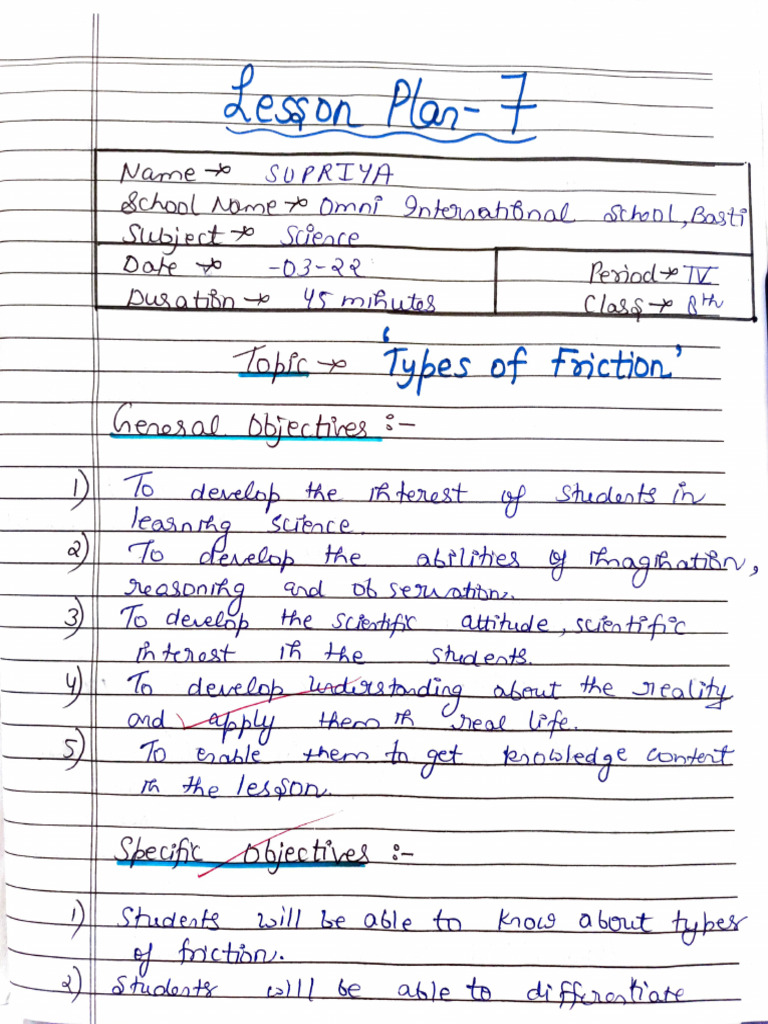 Lesson Plan-7
Name → SUPRIYA
School Name → Omni International School, Basti
Subject → Science
Date → -03-22
Period → IV
Duration → 45 minutes
Class → 8th
Topic → 'Types of Friction'
General Objectives :-
1) To develop the interest of students in
learning science.
2) To develop the abilities of imagination,
reasoning and observation.
3) To develop the scientific attitude, scientific
interest in the students.
4) To develop understanding about the reality
and apply them in real life.
5) To enable them to get knowledge content
in the lesson.
Specific Objectives :-
1) Students will be able to know about types
of friction.
2) Students will be able to differentiate